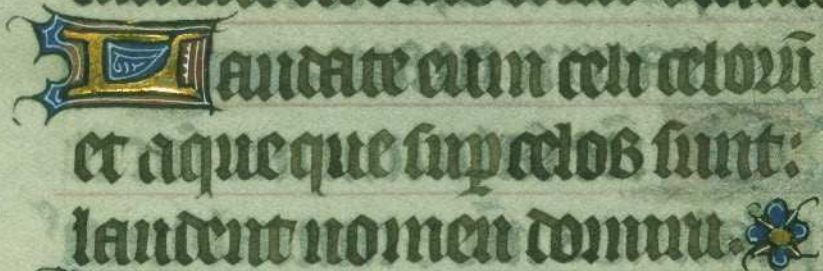 Laudate eum celi celorū
et aque que sup̲ celos sunt:
laudent nomen domini.